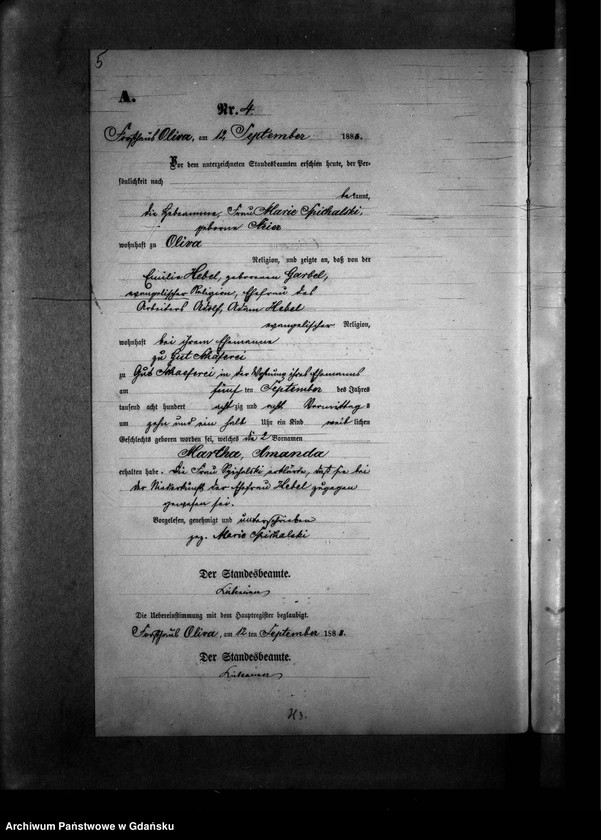 5
A.
Nr. 4
Forsthaus Oliva, am 12 September 1888.
Vor dem unterzeichneten Standesbeamten erschien heute, der Per-
sönlichkeit nach
be kannt,
die Hebeamme, Frau Marie Spichalski,
geborne
wohnhaft zu Oliva
Religion, und zeigte an, daß von der
Emilie Hebel, geborenen Garbel,
evangelischer Religion, Ehefrau des
Arbeiters Adolf, Adam Hebel
evangelischer Religion,
wohnhaft bei ihrem Ehemanne
zu Gut Schäferei
zu Gut Schaeferei in der Wohnung ihres Ehemanns
am fünf ten September des Jahres
tausend acht hundert acht zig und acht Vormittag s
um zehn und ein halb Uhr ein Kind weib lichen
Geschlechts geboren worden sei, welches die 2 Vornamen
Martha, Amanda
erhalten habe. Die Frau erklärte, daß sie bei
der Niederkunft der Ehefrau Hebel zugegen
gewesen sei.
Vorgelesen, genehmigt und unterschrieben
gez. Marie Spichalski
Der Standesbeamte.
Die Uebereinstimmung mit dem Hauptregister beglaubigt.
Forsthaus Oliva, am 12 ten September 1888.
Der Standesbeamte.
Archiwum Państwowe w Gdańsku